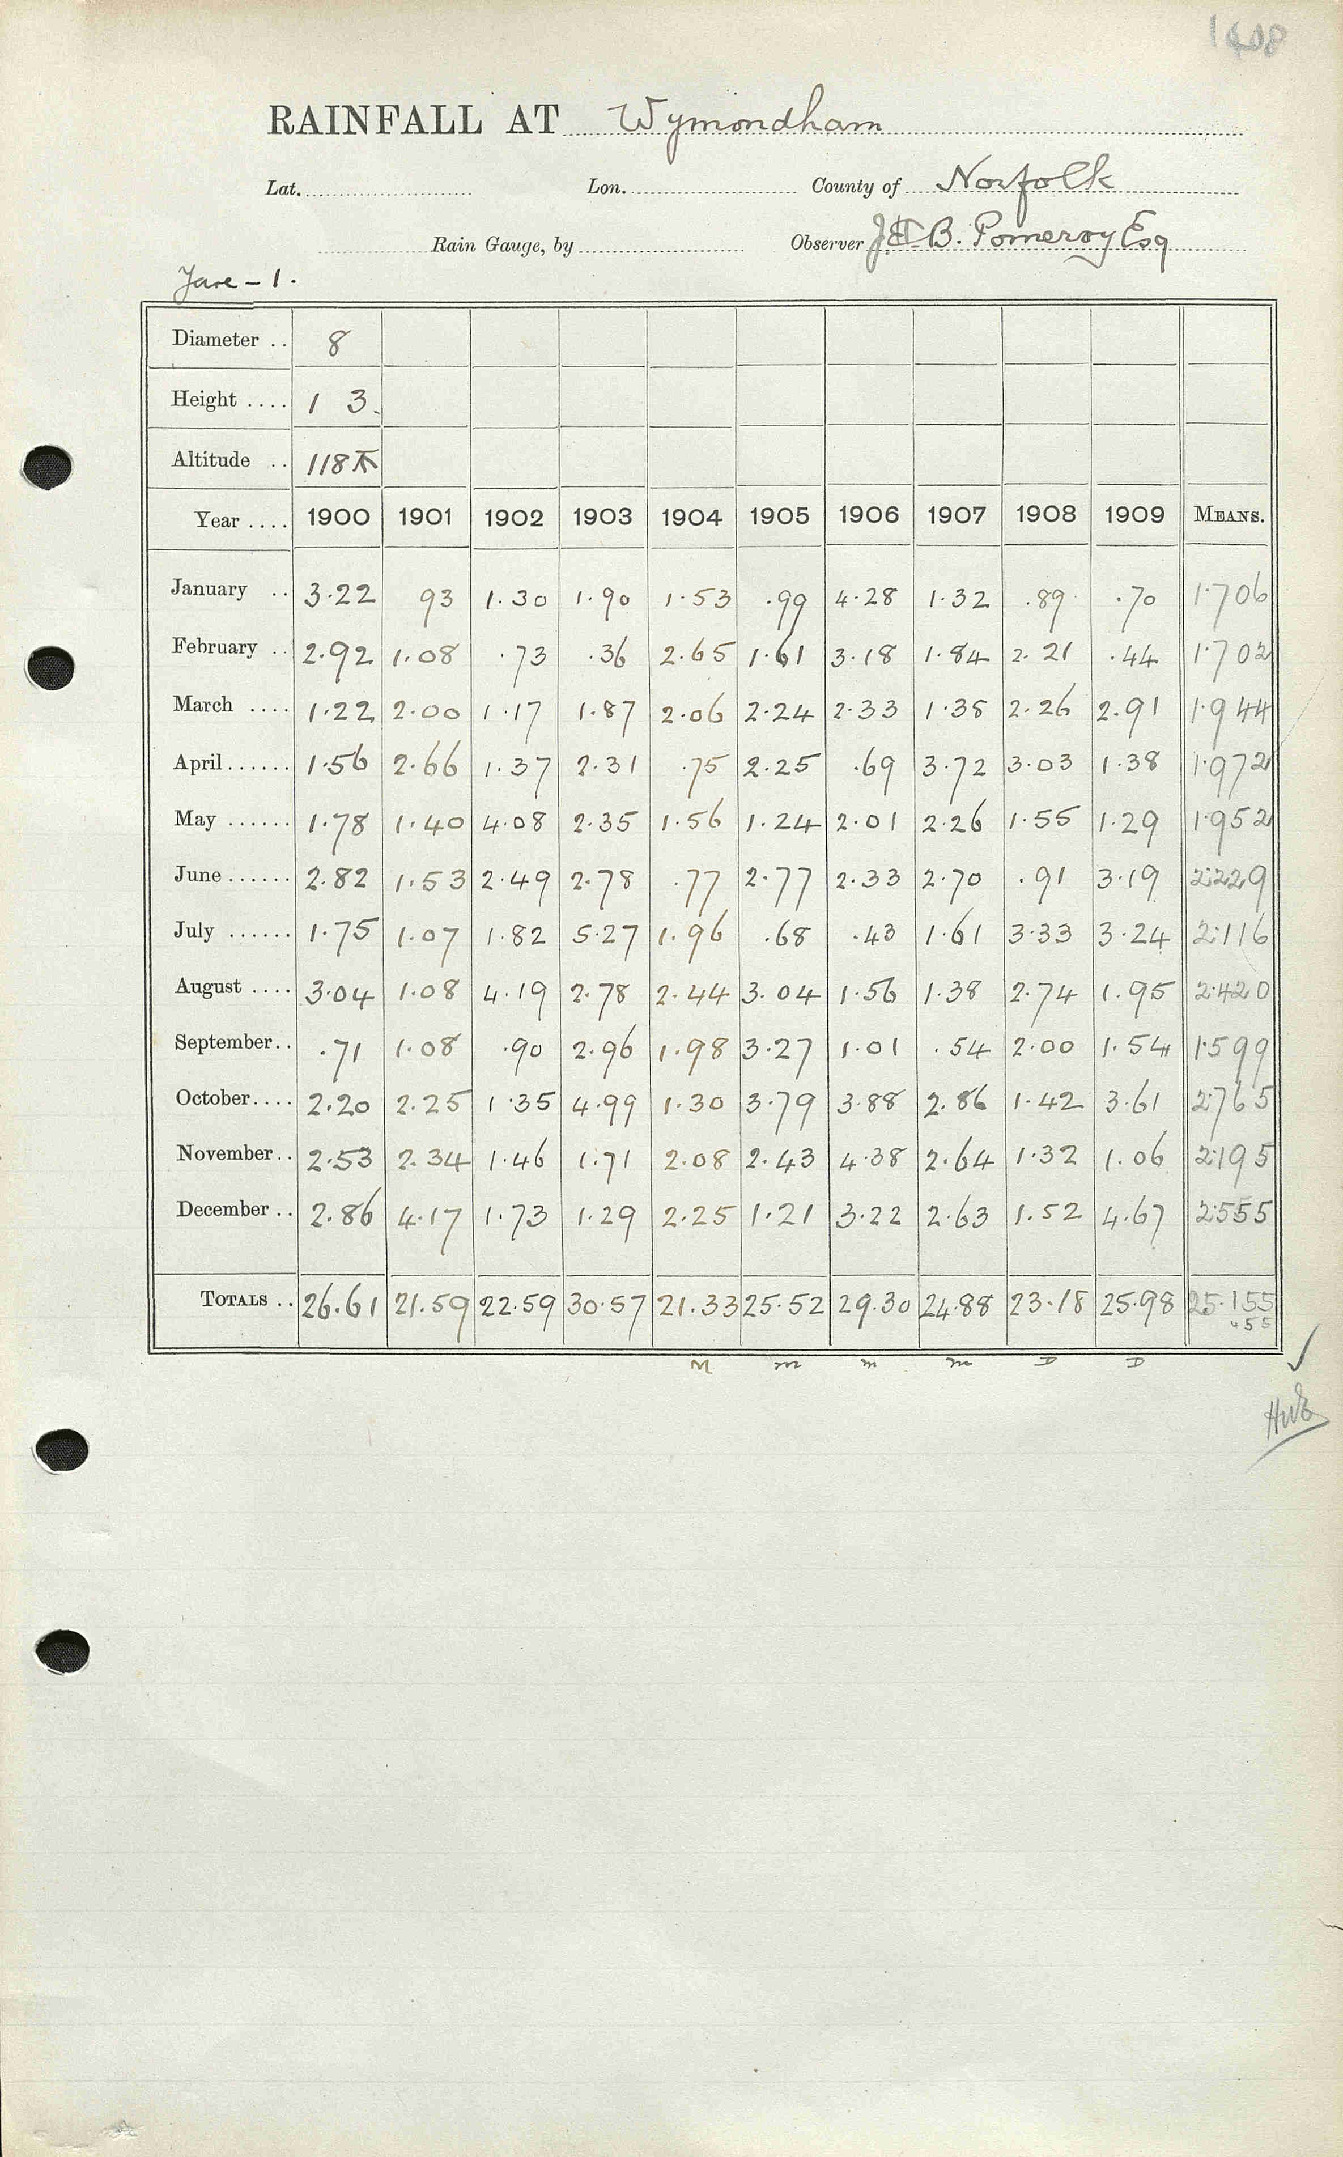 1408
RAINFALL AT Wymondham
Lat. Lon. County of Norfolk
Rain Gauge, by Observer J. B. Pomeroy Esq
Yare - 1.
Diameter .. 8
Height .... 1 3.
Altitude .. 118
Year .... 1900 1901 1902 1903 1904 1905 1906 1907 1908 1909 MEANS.
January .. 3.22 93 1.30 1.90 1.53 .99 4.28 1.32 .89 .70 1.706
February .. 2.92 1.08 .73 .36 2.65 1.61 3.18 1.84 2.21 .44 1.702
March .... 1.22 2.00 1.17 1.87 2.06 2.24 2.33 1.38 2.26 2.91 1.944
April...... 1.56 2.66 1.37 2.31 .75 2.25 .69 3.72 3.03 1.38 1.972
May ...... 1.78 1.40 4.08 2.35 1.56 1.24 2.01 2.26 1.55 1.29 1.952
June...... 2.82 1.53 2.49 2.78 .77 2.77 2.33 2.70 .91 3.19 2.229
July ...... 1.75 1.07 1.82 5.27 1.96 .68 .43 1.61 3.33 3.24 2.116
August .... 3.04 1.08 4.19 2.78 2.44 3.04 1.56 1.38 2.74 1.95 2.420
September.. .71 1.08 .90 2.96 1.98 3.27 1.01 .54 2.00 1.54 1.599
October.... 2.20 2.25 1.35 4.99 1.30 3.79 3.88 2.86 1.42 3.61 2.765
November.. 2.53 2.34 1.46 1.71 2.08 2.43 4.38 2.64 1.32 1.06 2.195
December .. 2.86 4.17 1.73 1.29 2.25 1.21 3.22 2.63 1.52 4.67 2.555
TOTALS .. 26.61 21.59 22.59 30.57 21.33 25.52 29.30 24.88 23.18 25.98 25.155
55
M m m m D D